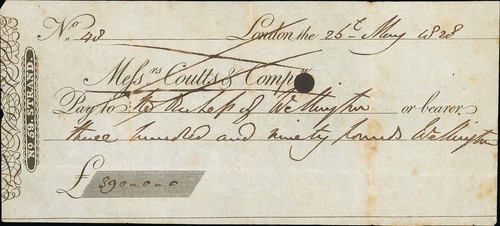 No. 48 London the 26t May 1828
Messrs Coutts & Compy
Pay to the Duchess of Wellington or bearer
three hundred and ninety pounds Wellington
£ 390-0-0
No. 59 STRAND.